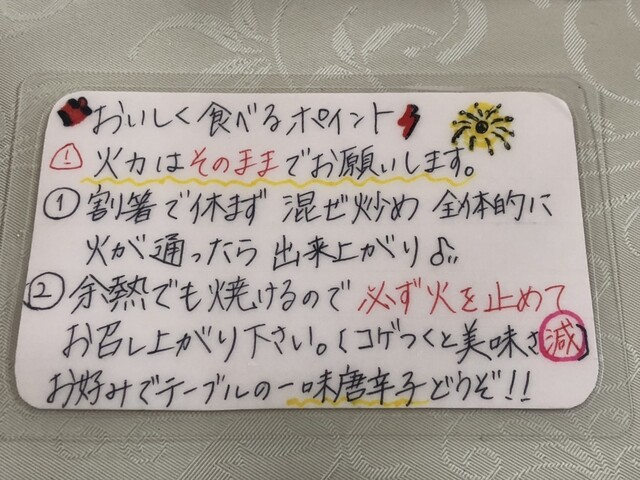 おいしく食べるポイント
! 火力はそのままでお願いします。
① 割箸で休まず 混ぜ炒め 全体的に
火が通ったら 出来上がり♪
② 余熱でも焼けるので 必ず火を止めて
お召し上がり下さい。(コゲつくと美味さ減)
お好みでテーブルの一味唐辛子どうぞ!!